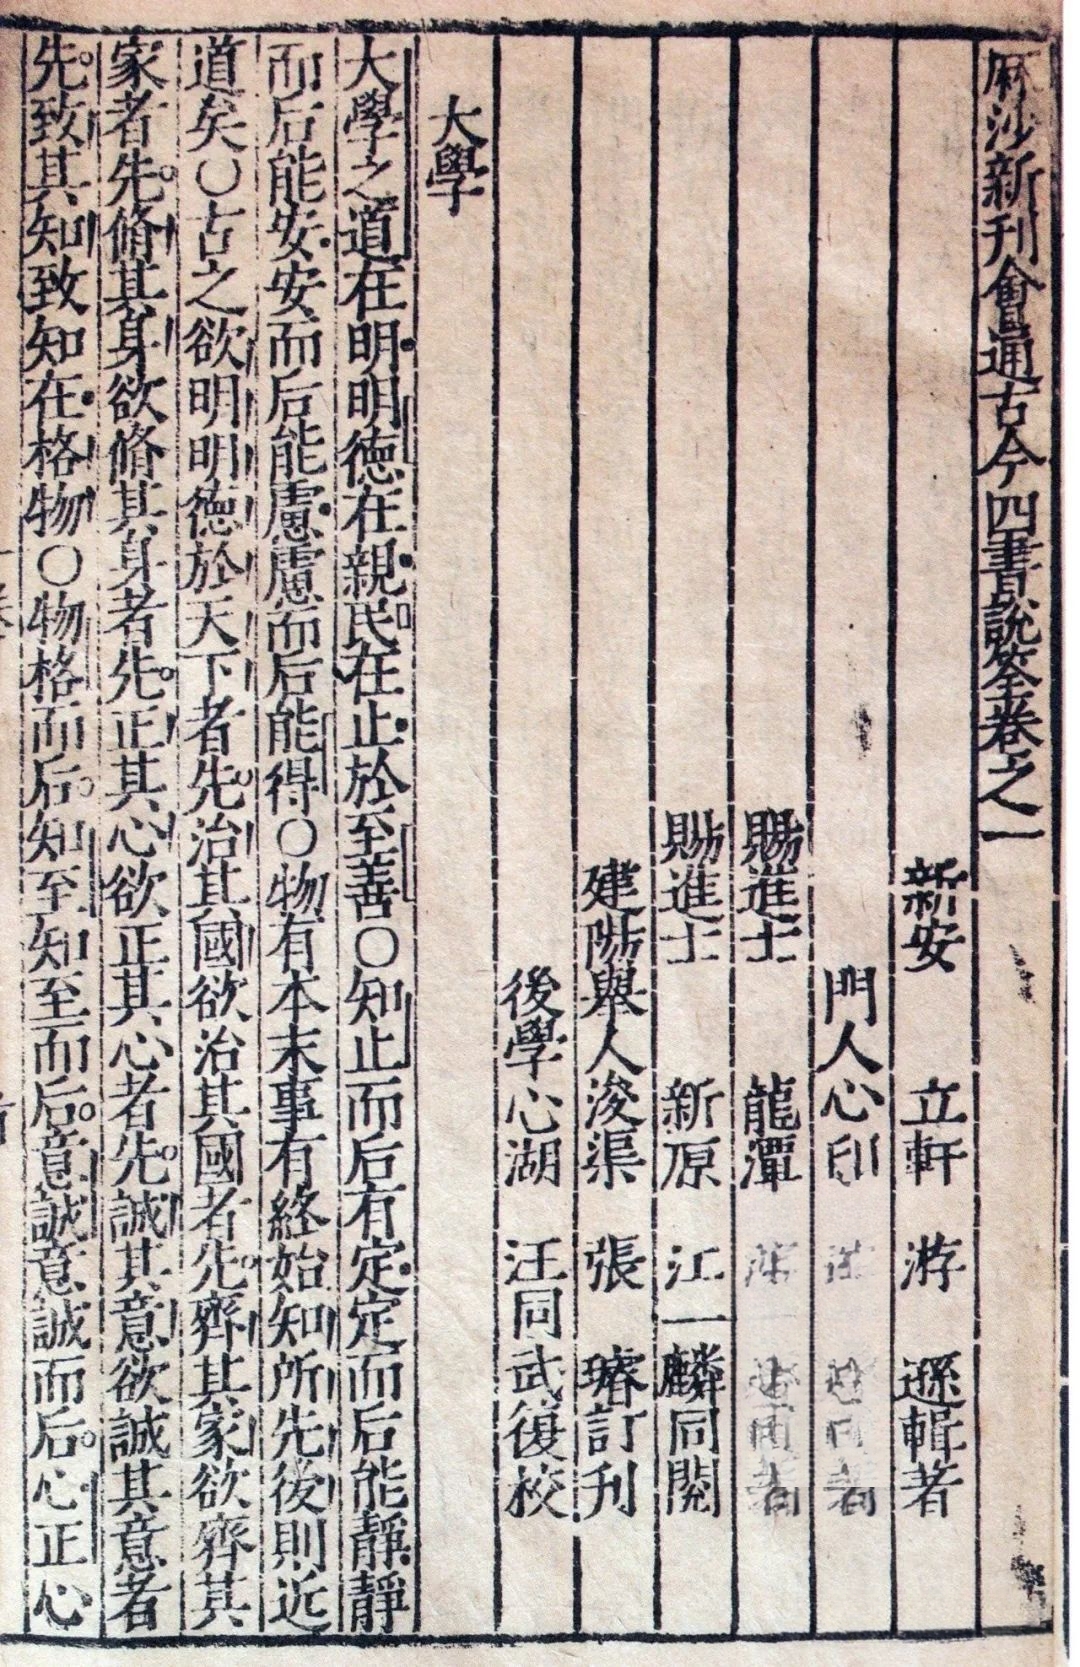 麻沙新刊會通古今四書說筌卷之一
新安 立軒 游 遜輯著
門人心印
賜進士 龍潭
賜進士 新原 江一麟同閱
建陽舉人浚渠 張 璿訂刊
後學心湖 汪同武復校
大學
大學之道在明明德在親民在止於至善○知止而后有定定而后能靜靜
而后能安安而后能慮慮而后能得○物有本末事有終始知所先後則近
道矣○古之欲明明德於天下者先治其國欲治其國者先齊其家欲齊其
家者先脩其身欲脩其身者先正其心欲正其心者先誠其意欲誠其意者
先致其知致知在格物○物格而后知至知至而后意誠意誠而后心正心